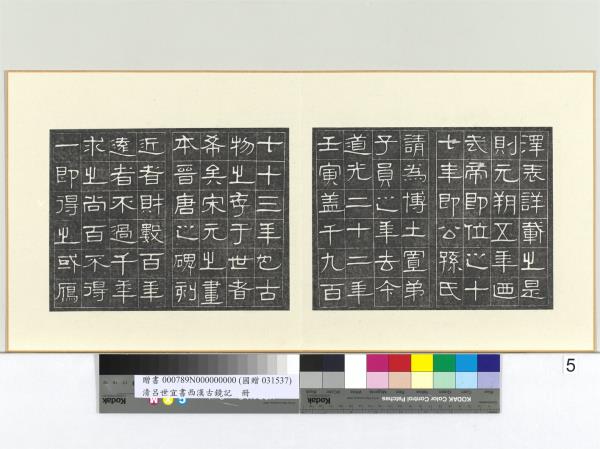 澤表詳載之是
則元朔五年迺
武帝即位之十
七年即公孫氏
請為博士置弟
子員之年去今
道光二十二年
壬寅蓋千九百
七十三年也古
物之存于世者
希矣宋元之畫
本晉唐之碑刻
近者財數百年
遠者不過千年
求之尚百不得
一即得之或贗
5
贈書 000789N000000000 (國贈 031537)
清呂世宜書西漢古鏡記 冊
Kodak
KODAK Color Control Patches